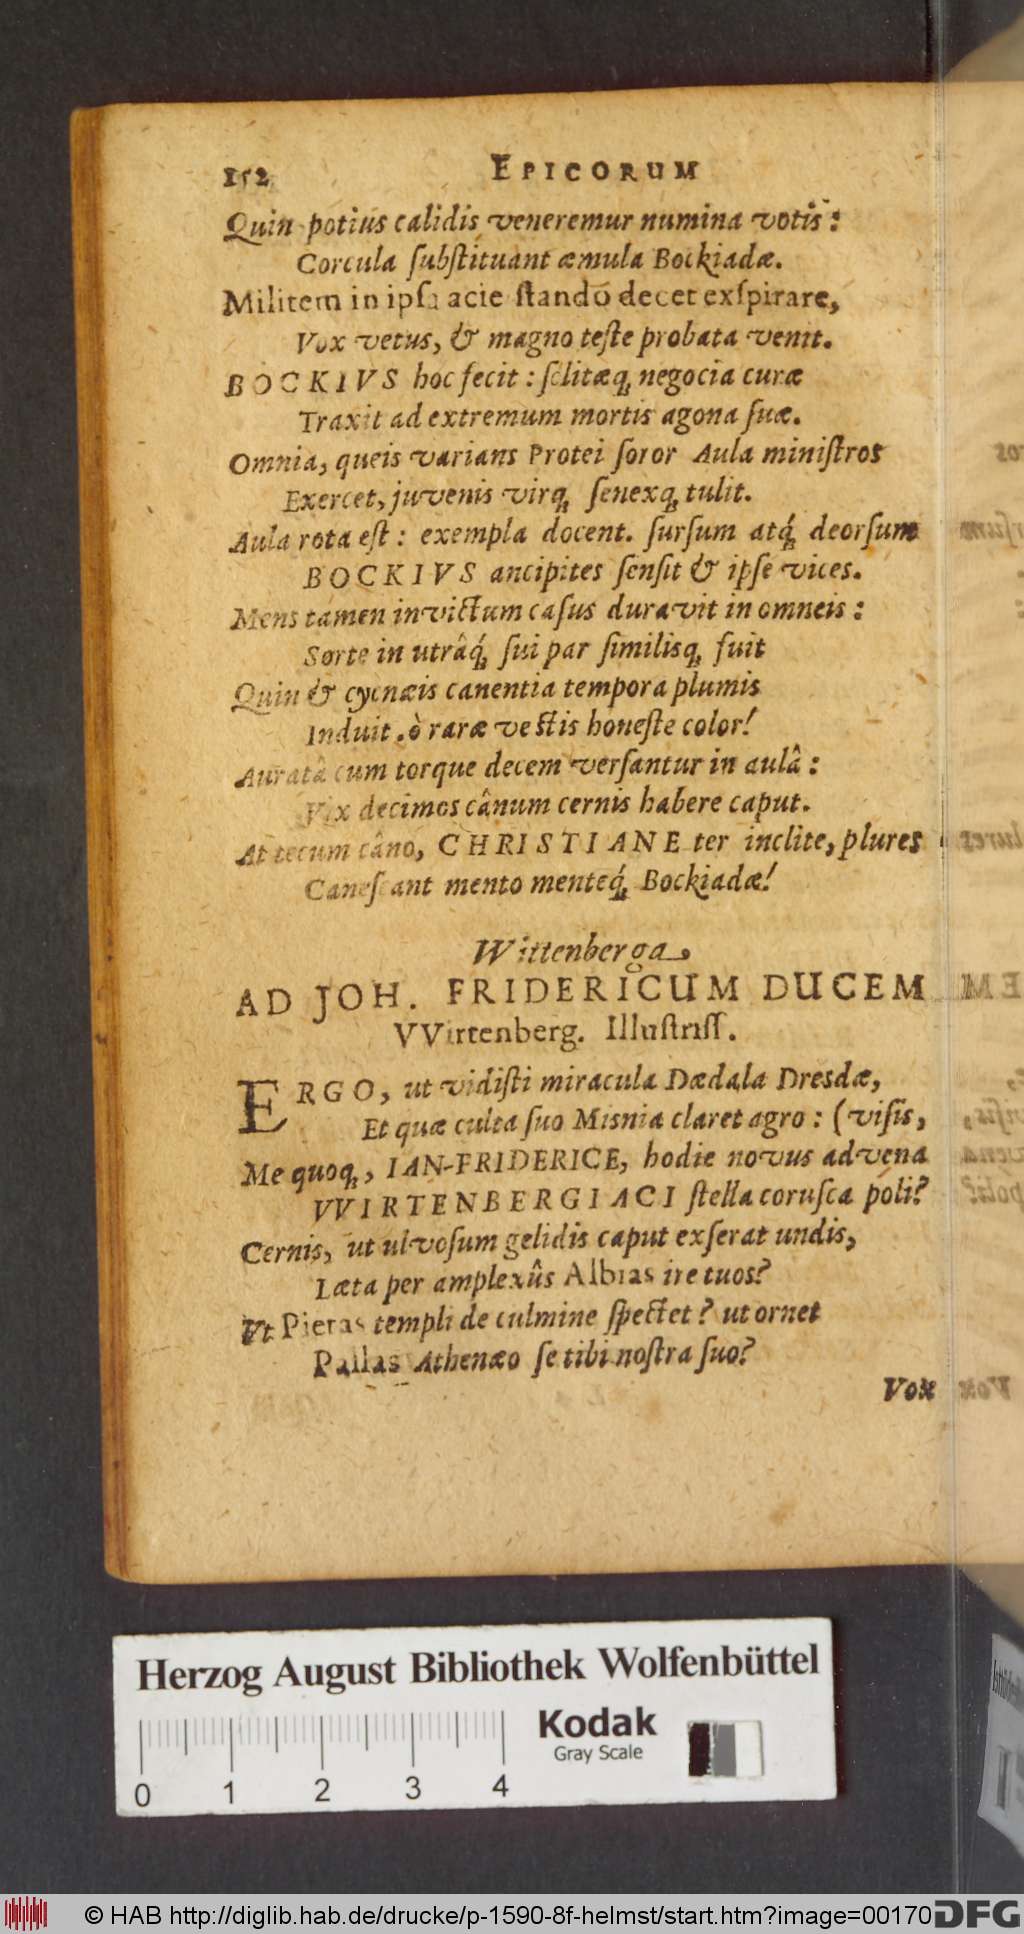 152 EPICORUM
Quin potius calidis veneremur numina votis:
Corcula ſubſtituant æmula Bockiadæ.
Militem in ipſa acie ſtando decet exſpirare,
Vox vetus, & magno teſte probata venit.
BOCKIVS hoc fecit: ſolitæq́; negocia curæ
Traxit ad extremum mortis agona ſuæ.
Omnia, queis varians Protei ſoror Aula miniſtros
Exercet, juvenis virq; ſenexq; tulit.
Aula rota eſt: exempla docent. ſurſum atq́; deorſum
BOCKIVS ancipites ſenſit & ipſe vices.
Mens tamen invictum caſus duravit in omneis:
Sorte in utrâq́; ſui par ſimilisq; fuit
Quin & cycnæis canentia tempora plumis
Induit. ò raræ veſtis honeſte color!
Auratâ cum torque decem verſantur in aulâ:
Vix decimos cânum cernis habere caput.
At tecum câno, CHRISTIANE ter inclite, plures
Caneſcant mento menteq́; Bockiadæ!
Wittenberga,
AD JOH. FRIDERICUM DUCEM
VVirtenberg. Illuſtriſſ.
ERGO, ut vidiſti miracula Dædala Dresdæ,
Et quæ culta ſuo Misnia claret agro: (viſis,
Me quoq;, IAN-FRIDERICE, hodie novus advena
VVIRTENBERGIACI ſtella coruſca poli?
Cernis, ut ulvoſum gelidis caput exſerat undis,
Læta per amplexûs Albias ire tuos?
Vt Pietas templi de culmine ſpectet? ut ornet
Pallas Athenæo ſe tibi noſtra ſuo?
Vox
Herzog August Bibliothek Wolfenbüttel
Kodak
Gray Scale
0 1 2 3 4
© HAB http://diglib.hab.de/drucke/p-1590-8f-helmst/start.htm?image=00170
DFG